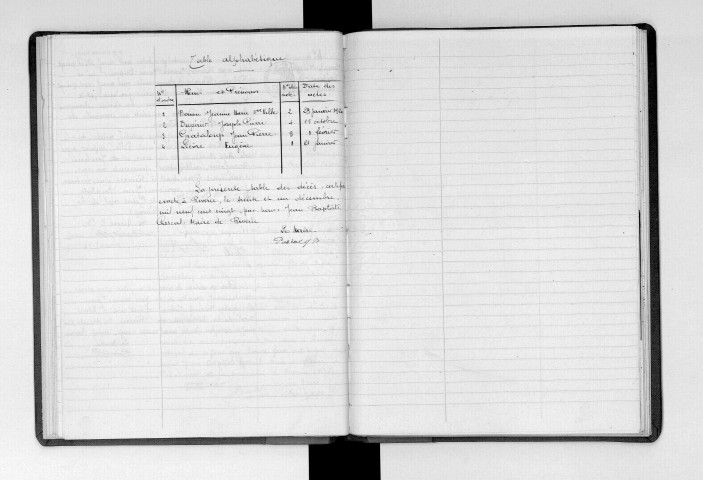 Table alphabétique
Nos d'ordre Noms et Prénoms Nos des act. Date des actes
1 Jeanne Marie Vve 2 29 janvier 1920
2 Joseph Pierre 4 15 octobre
3 Chataloup Jean Pierre 3 février
4 Lièvre Eugène 1 21 janvier
La présente table des décès, certifi
à Riverie, le trente et un décembre
mil neuf cent vingt, par nous Jean Baptiste
Maire de Riverie
Le Maire